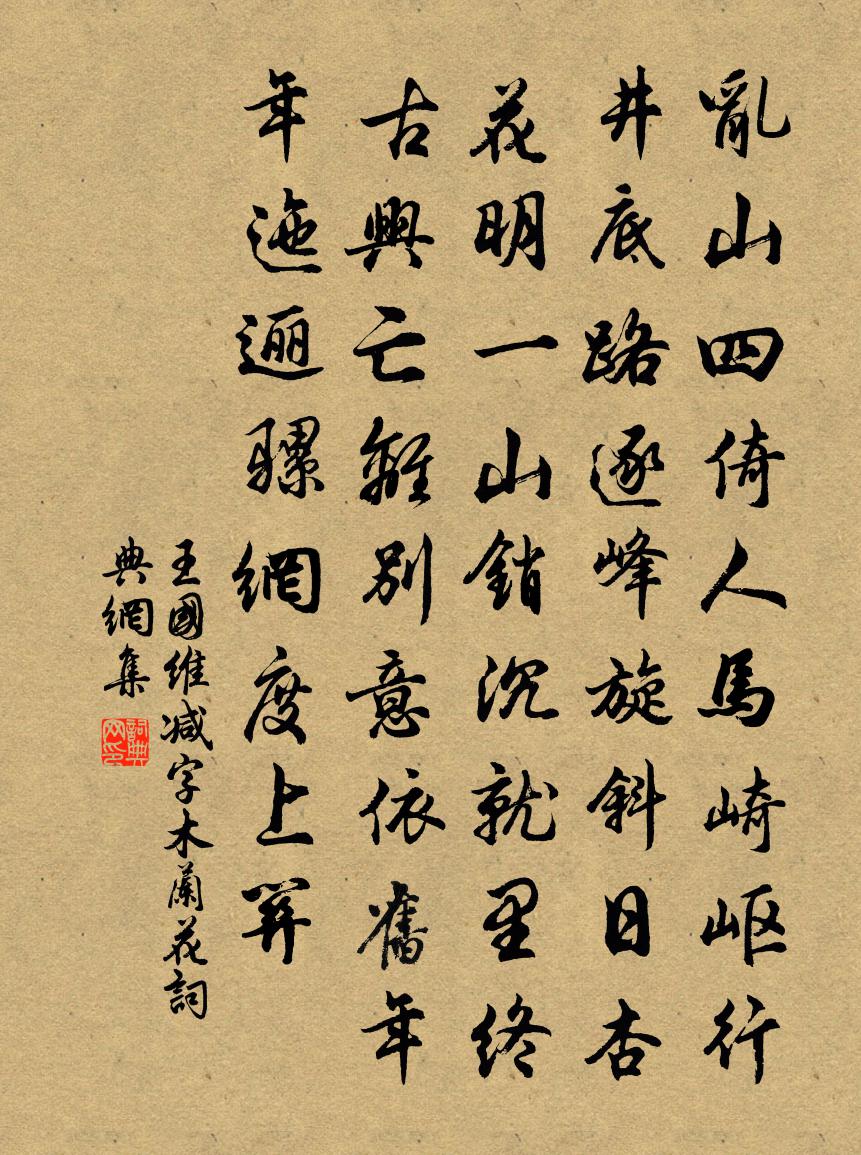 亂山四倚人馬崎嶇行
井底路逐峰旋斜日杏
花明一山銷沉就里終
古興亡離別意依舊年
年迤逦骡網度上關
王國維减字木蘭花詞
典網集
詞典网印